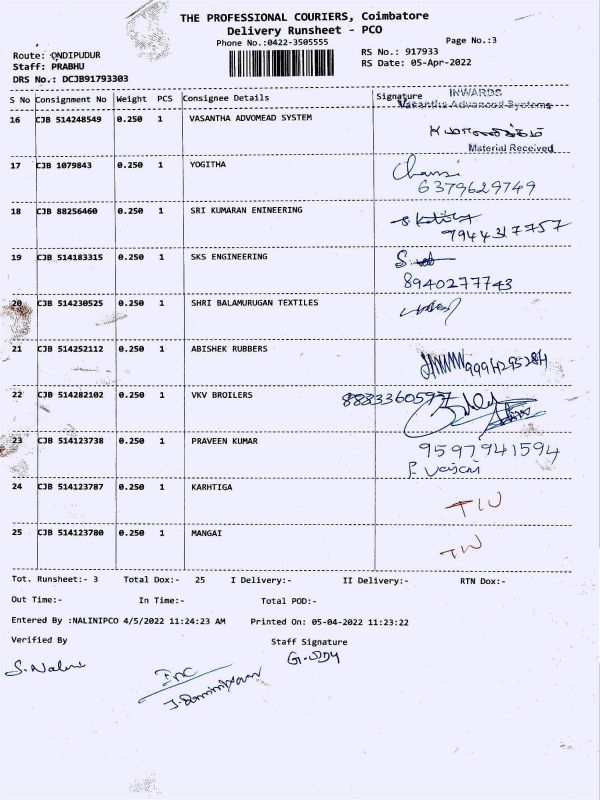 THE PROFESSIONAL COURIERS, Coimbatore
Delivery Runsheet - PCO
Phone No.:0422-3505555
Page No.:3
Route: ONDIPUDUR
RS No.: 917933
Staff: PRABHU
RS Date: 05-Apr-2022
DRS No.: DCJB91793303
S No Consignment No Weight PCS Consignee Details Signature
INWARDS
Vasantha Advanced Systems
16 CJB 514248549 0.250 1 VASANTHA ADVOMEAD SYSTEM
Material Received
17 CJB 1079843 0.250 1 YOGITHA
6379629749
18 CJB 88256460 0.250 1 SRI KUMARAN ENINEERING
7944317757
19 CJB 514183315 0.250 1 SKS ENGINEERING
8940277743
20 CJB 514230525 0.250 1 SHRI BALAMURUGAN TEXTILES
21 CJB 514252112 0.250 1 ABISHEK RUBBERS
9994295284
22 CJB 514282102 0.250 1 VKV BROILERS 8883360597
23 CJB 514123738 0.250 1 PRAVEEN KUMAR 9597941594
24 CJB 514123787 0.250 1 KARHTIGA
25 CJB 514123780 0.250 1 MANGAI
Tot. Runsheet:- 3 Total Dox:- 25 I Delivery:- II Delivery:- RTN Dox:-
Out Time:- In Time:- Total POD:-
Entered By :NALINIPCO 4/5/2022 11:24:23 AM Printed On: 05-04-2022 11:23:22
Verified By Staff Signature
S. Nalini